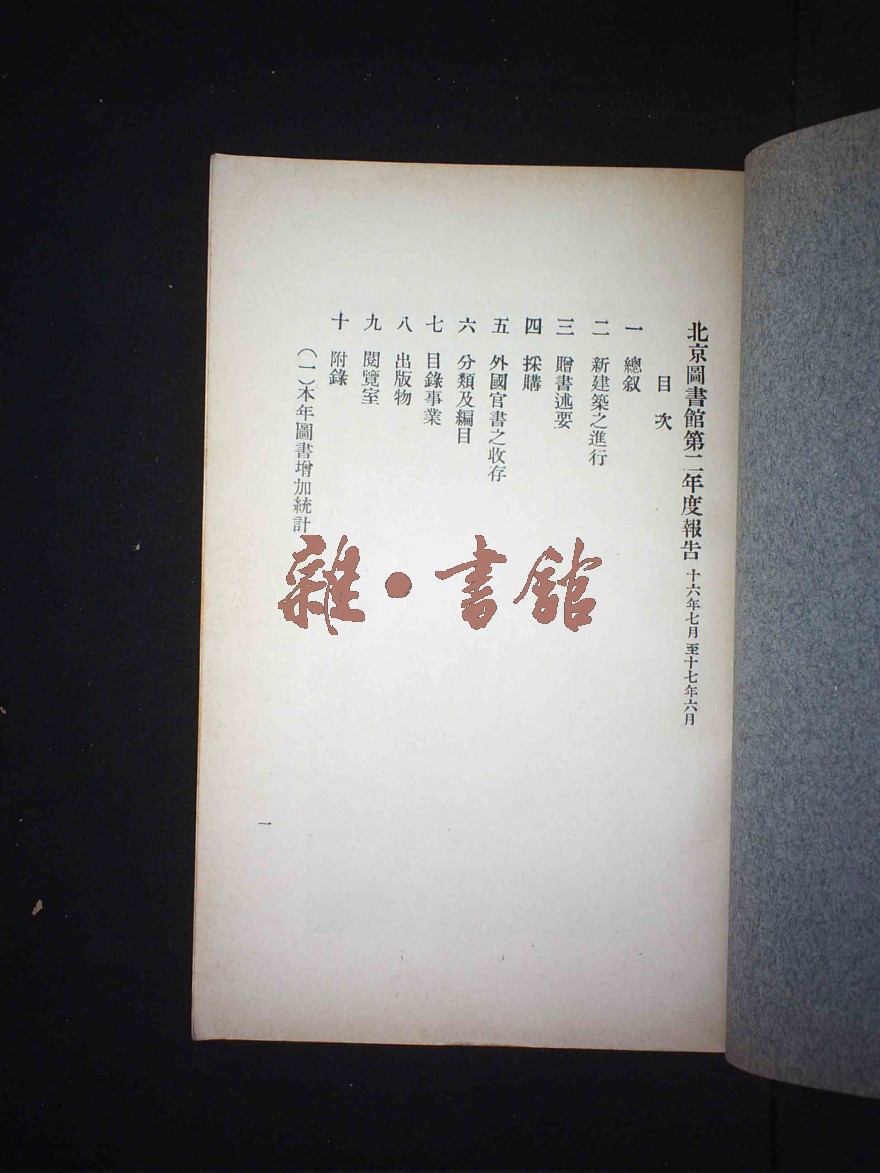 北京圖書館第二年度報告 十六年七月至十七年六月
目次
一 總叙
二 新建築之進行
三 贈書述要
四 採購
五 外國官書之收存
六 分類及編目
七 目錄事業
八 出版物
九 閱覽室
十 附錄
(一)本年圖書增加統計
一
雜·書館